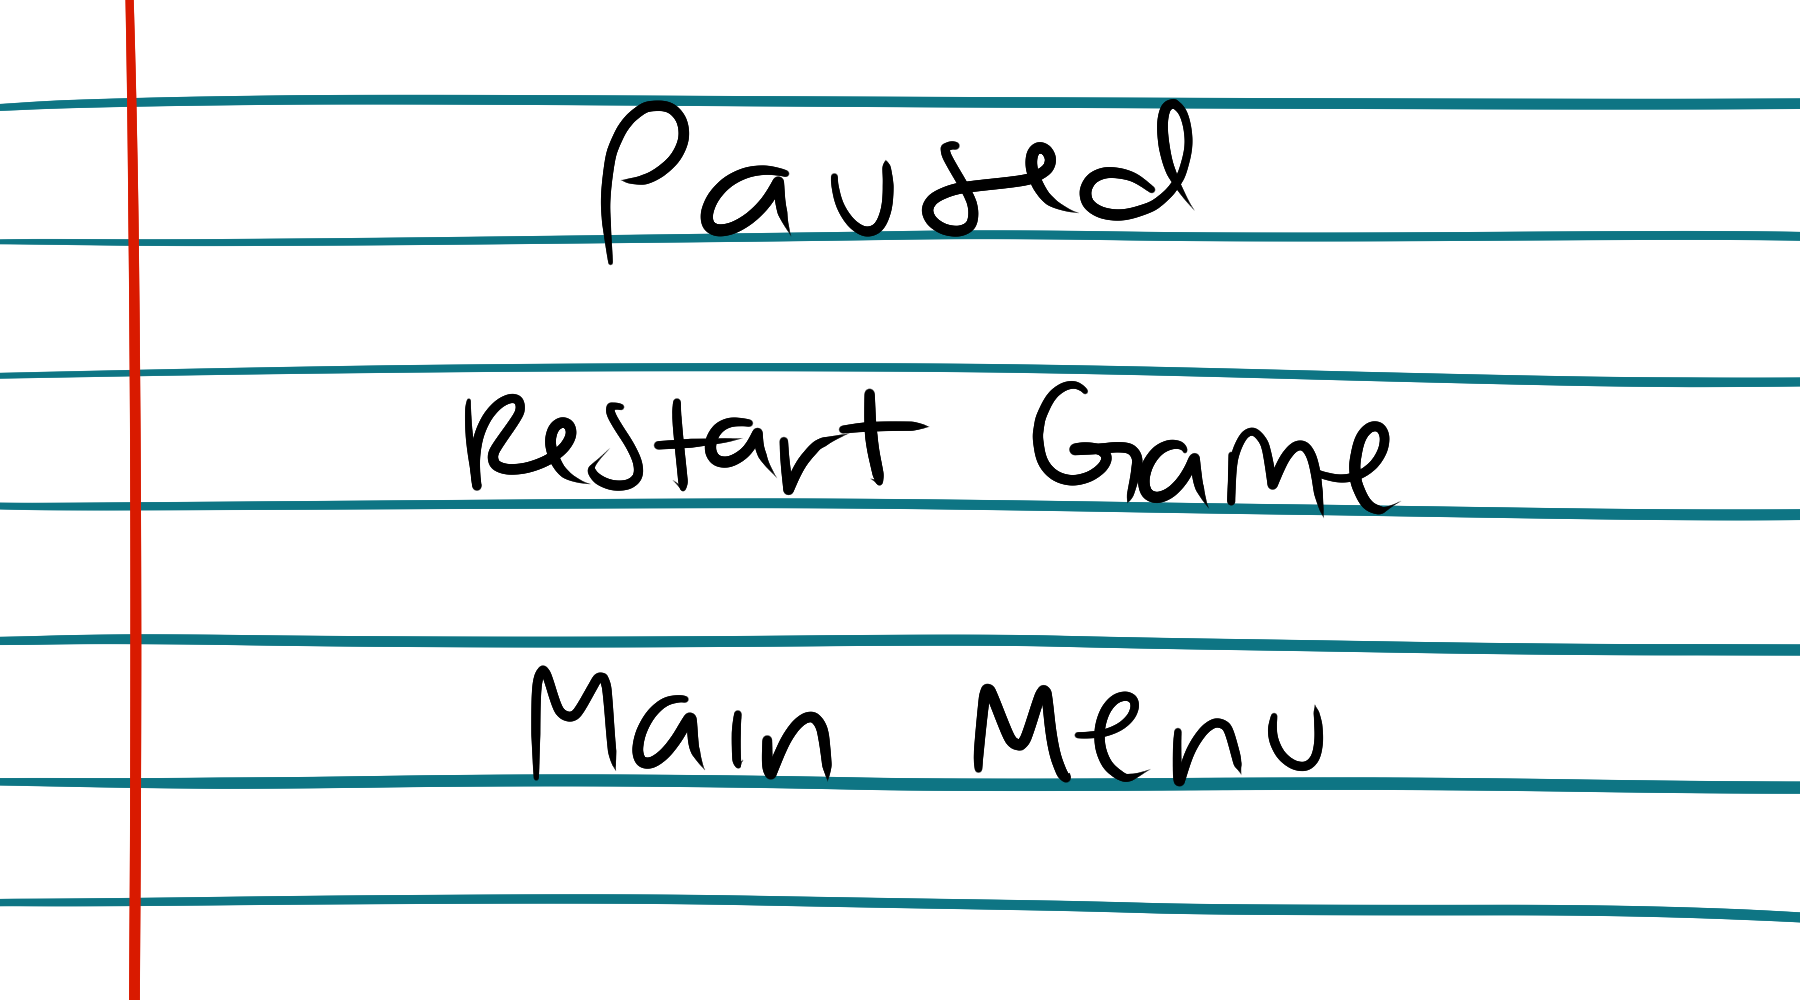 Paused
Restart Game
Main Menu